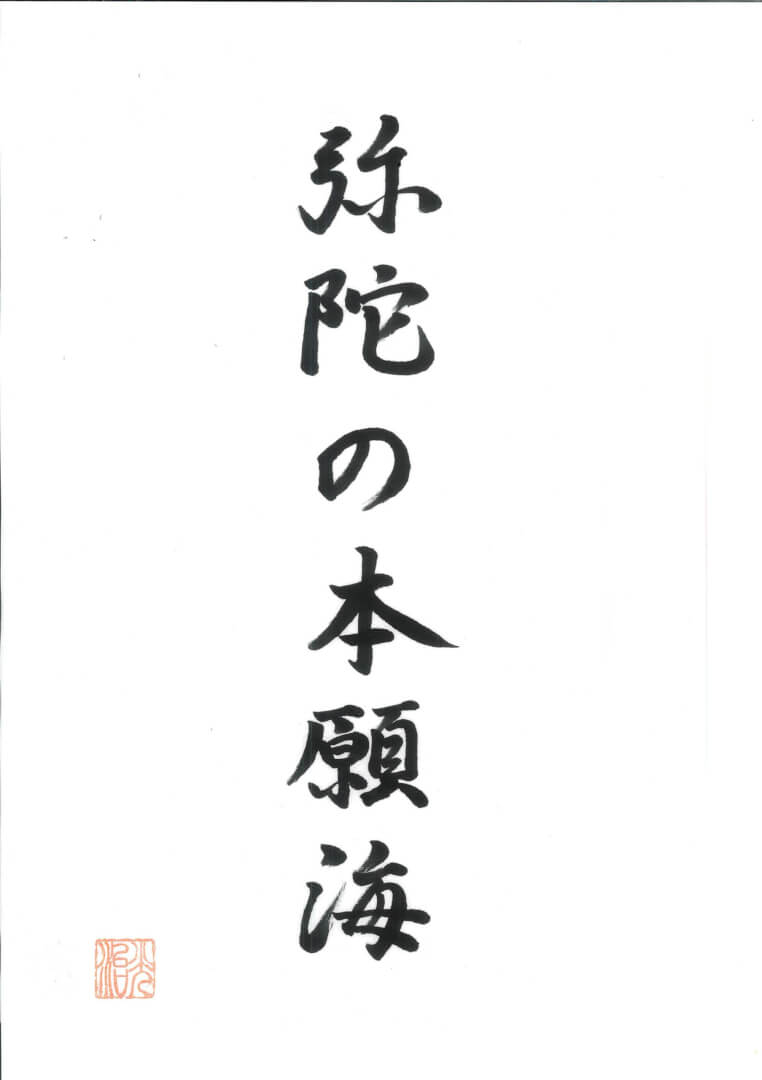 弥陀の本願海